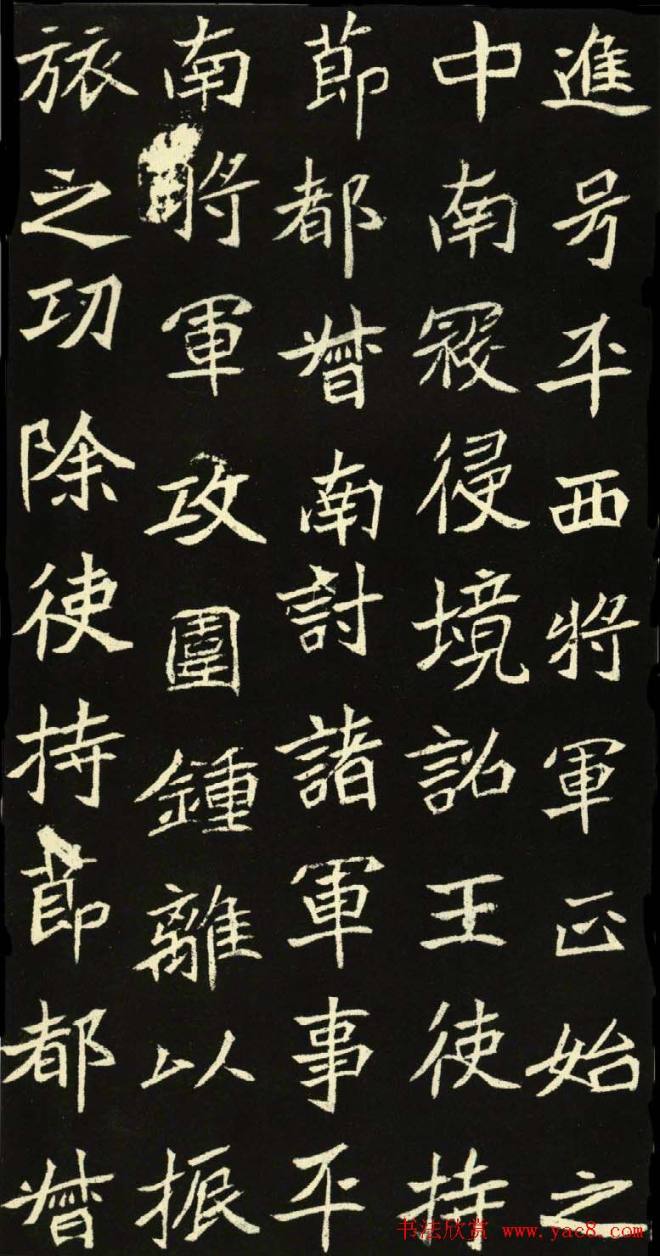 進号平西將軍正始之
中南寇侵境詔王使持
節都督南討諸軍事平
南將軍攻圍鍾離以振
旅之功除使持節都督
书法欣赏 www.yac8.com